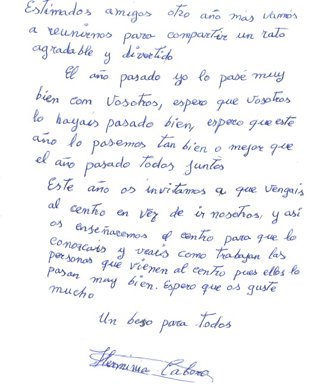 Estimados amigos otro año mas vamos
a reunirnos para compartir un rato
agradable y divertido
El año pasado yo lo pasé muy
bien con vosotros, espero que vosotros
lo hayais pasado bien, espero que este
año lo pasemos tan bien o mejor que
el año pasado todos juntos
Este año os invitamos a que vengais
al centro en vez de ir nosotros, y así
os enseñaremos el centro para que lo
conozcais y veais como trabajan las
personas que vienen al centro pues ellos lo
pasan muy bien. Espero que os guste
mucho
Un beso para todos
Herminia